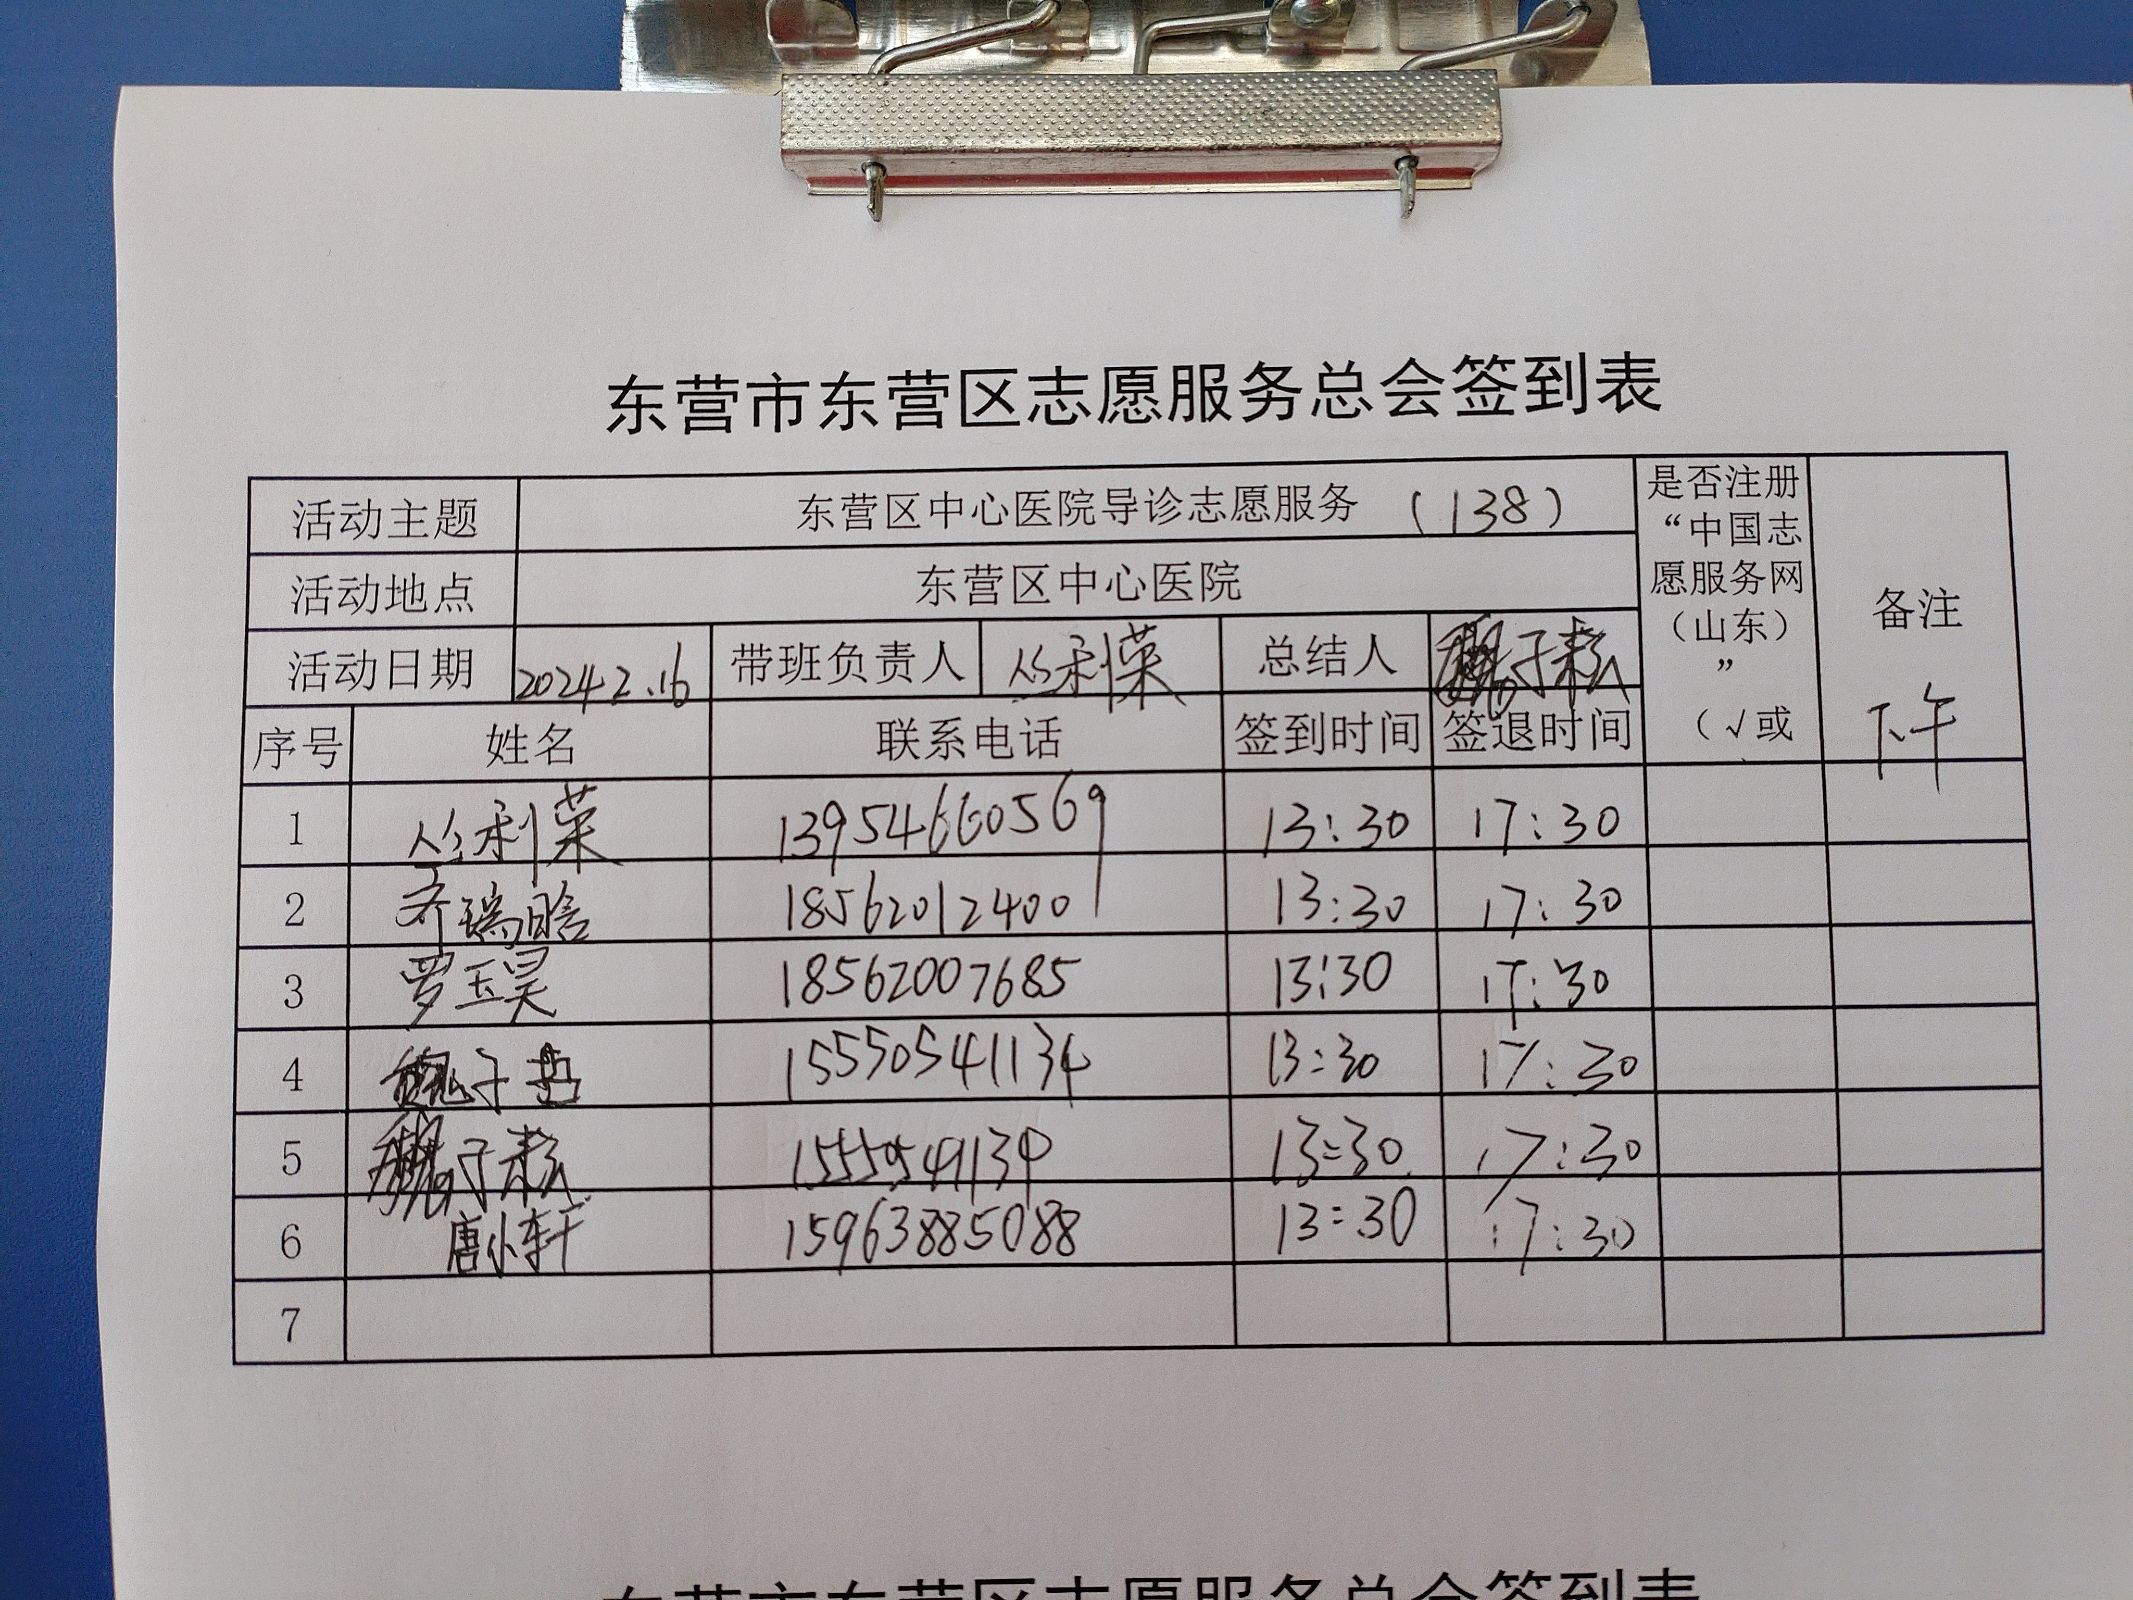 东营市东营区志愿服务总会签到表
活动主题 东营区中心医院导诊志愿服务 (138) 是否注册“中国志愿服务网（山东）”（√或 备注
活动地点 东营区中心医院
活动日期 2024.2.16 带班负责人 丛利荣 总结人 子耘
序号 姓名 联系电话 签到时间 签退时间 下午
1 丛利荣 13954660569 13:30 17:30
2 齐瑞晗 18562012400 13:30 17:30
3 罗玉昊 18562007685 13:30 17:30
4 子 15550541134 13:30 17:30
5 子耘 15550541134 13:30 17:30
6 唐小轩 15963885088 13:30 17:30
7
东营市东营区志愿服务总会签到表